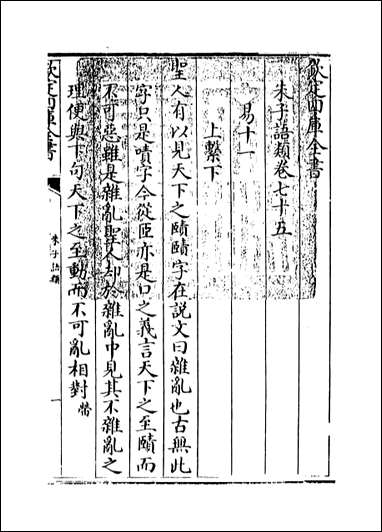 欽定四庫全書
朱子語類卷七十五
易十一
上繫下
聖人有以見天下之賾賾字在説文曰雜亂也古無此
字只是嘖字今從𦣞亦是口之義言天下之至賾而
不可惡雖是雜亂聖人却於雜亂中見其不雜亂之
理便與下句天下之至動而不可亂相對
欽定四庫全書
朱子語類
一